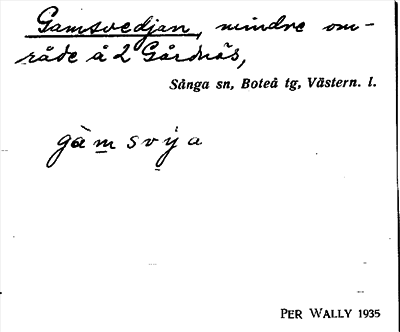 Gamsvedjan, mindre om-
råde å 2 Gårdnäs,
Sånga sn, Boteå tg, Västern. l.
gàm̲sv̲ẏa
PER WALLY 1935